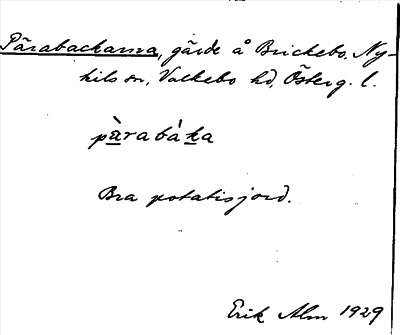 Pärabackarna, gärde å Brickebo. Ny-
kils sn, Valkebo hd, Österg. l.
pàrabáka
Bra potatisjord.
Erik Alm 1929